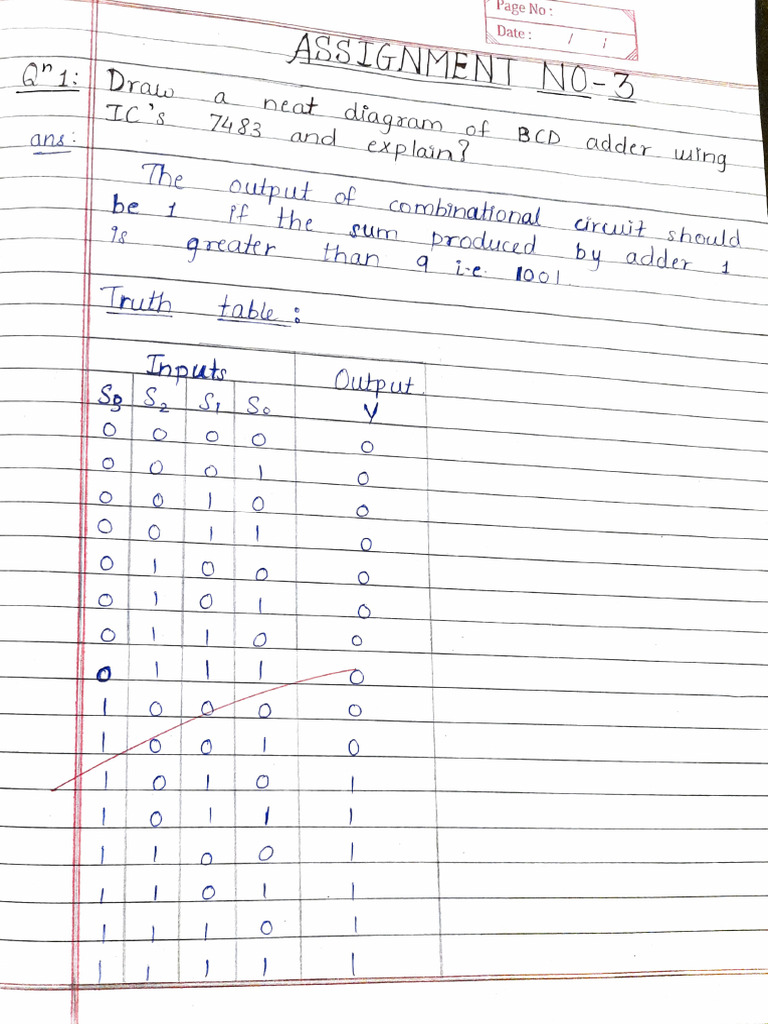 Page No :
Date : / /
ASSIGNMENT NO-3
Qⁿ 1: Draw a neat diagram of BCD adder using
IC's 7483 and explain?
ans:
The output of combinational circuit should
be 1 if the sum produced by adder 1
is greater than 9 i.e. 1001
Truth table:
Inputs Output
S3 S2 S1 S0 Y
0 0 0 0 0
0 0 0 1 0
0 0 1 0 0
0 0 1 1 0
0 1 0 0 0
0 1 0 1 0
0 1 1 0 0
0 1 1 1 0
1 0 0 0 0
1 0 0 1 0
1 0 1 0 1
1 0 1 1 1
1 1 0 0 1
1 1 0 1 1
1 1 1 0 1
1 1 1 1 1